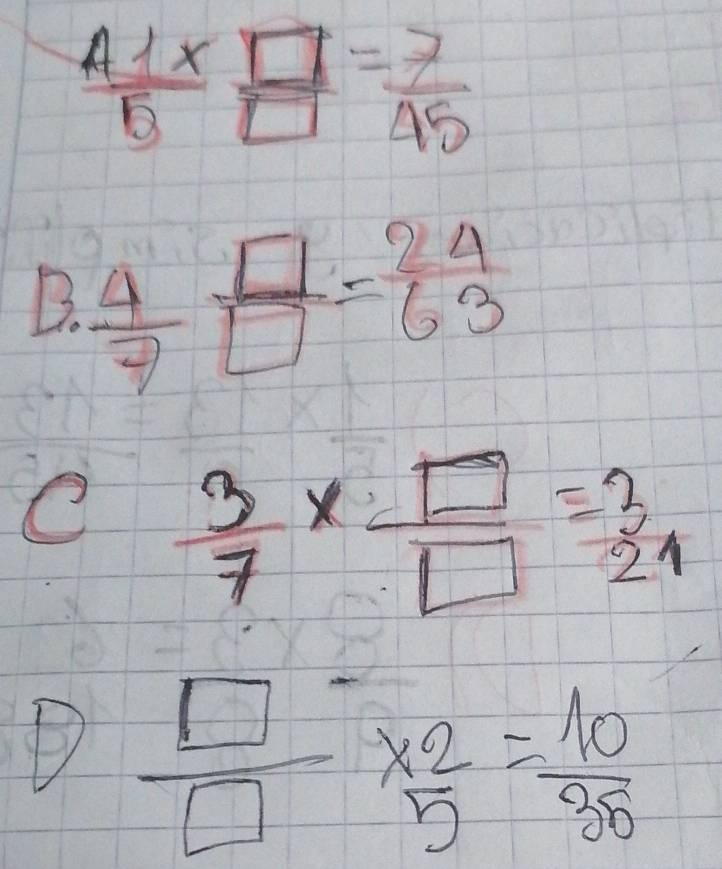 A 1/5 x □/□ = 7/45
B. 4/7 □/□ = 24/63
C 3/7 x □/□ = 3/21
D □/□ x 2/5 = 10/35